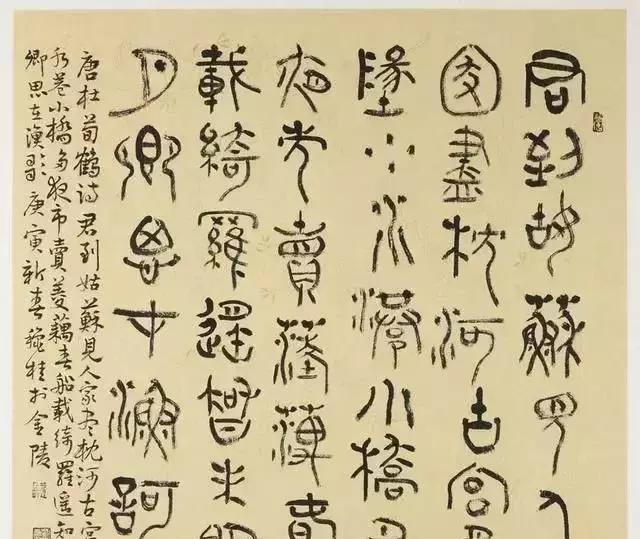 君到姑蘇見人
家盡枕河古宮
地少水港小橋
夜市賣菱藕春
載綺羅遙知未眠
月鄉思在漁歌
唐杜荀鶴詩君到姑蘇見人家尽枕河古宮
水巷小橋多夜市賣菱藕春船載綺羅遙知
鄉思在漁歌庚寅新春桂於金陵